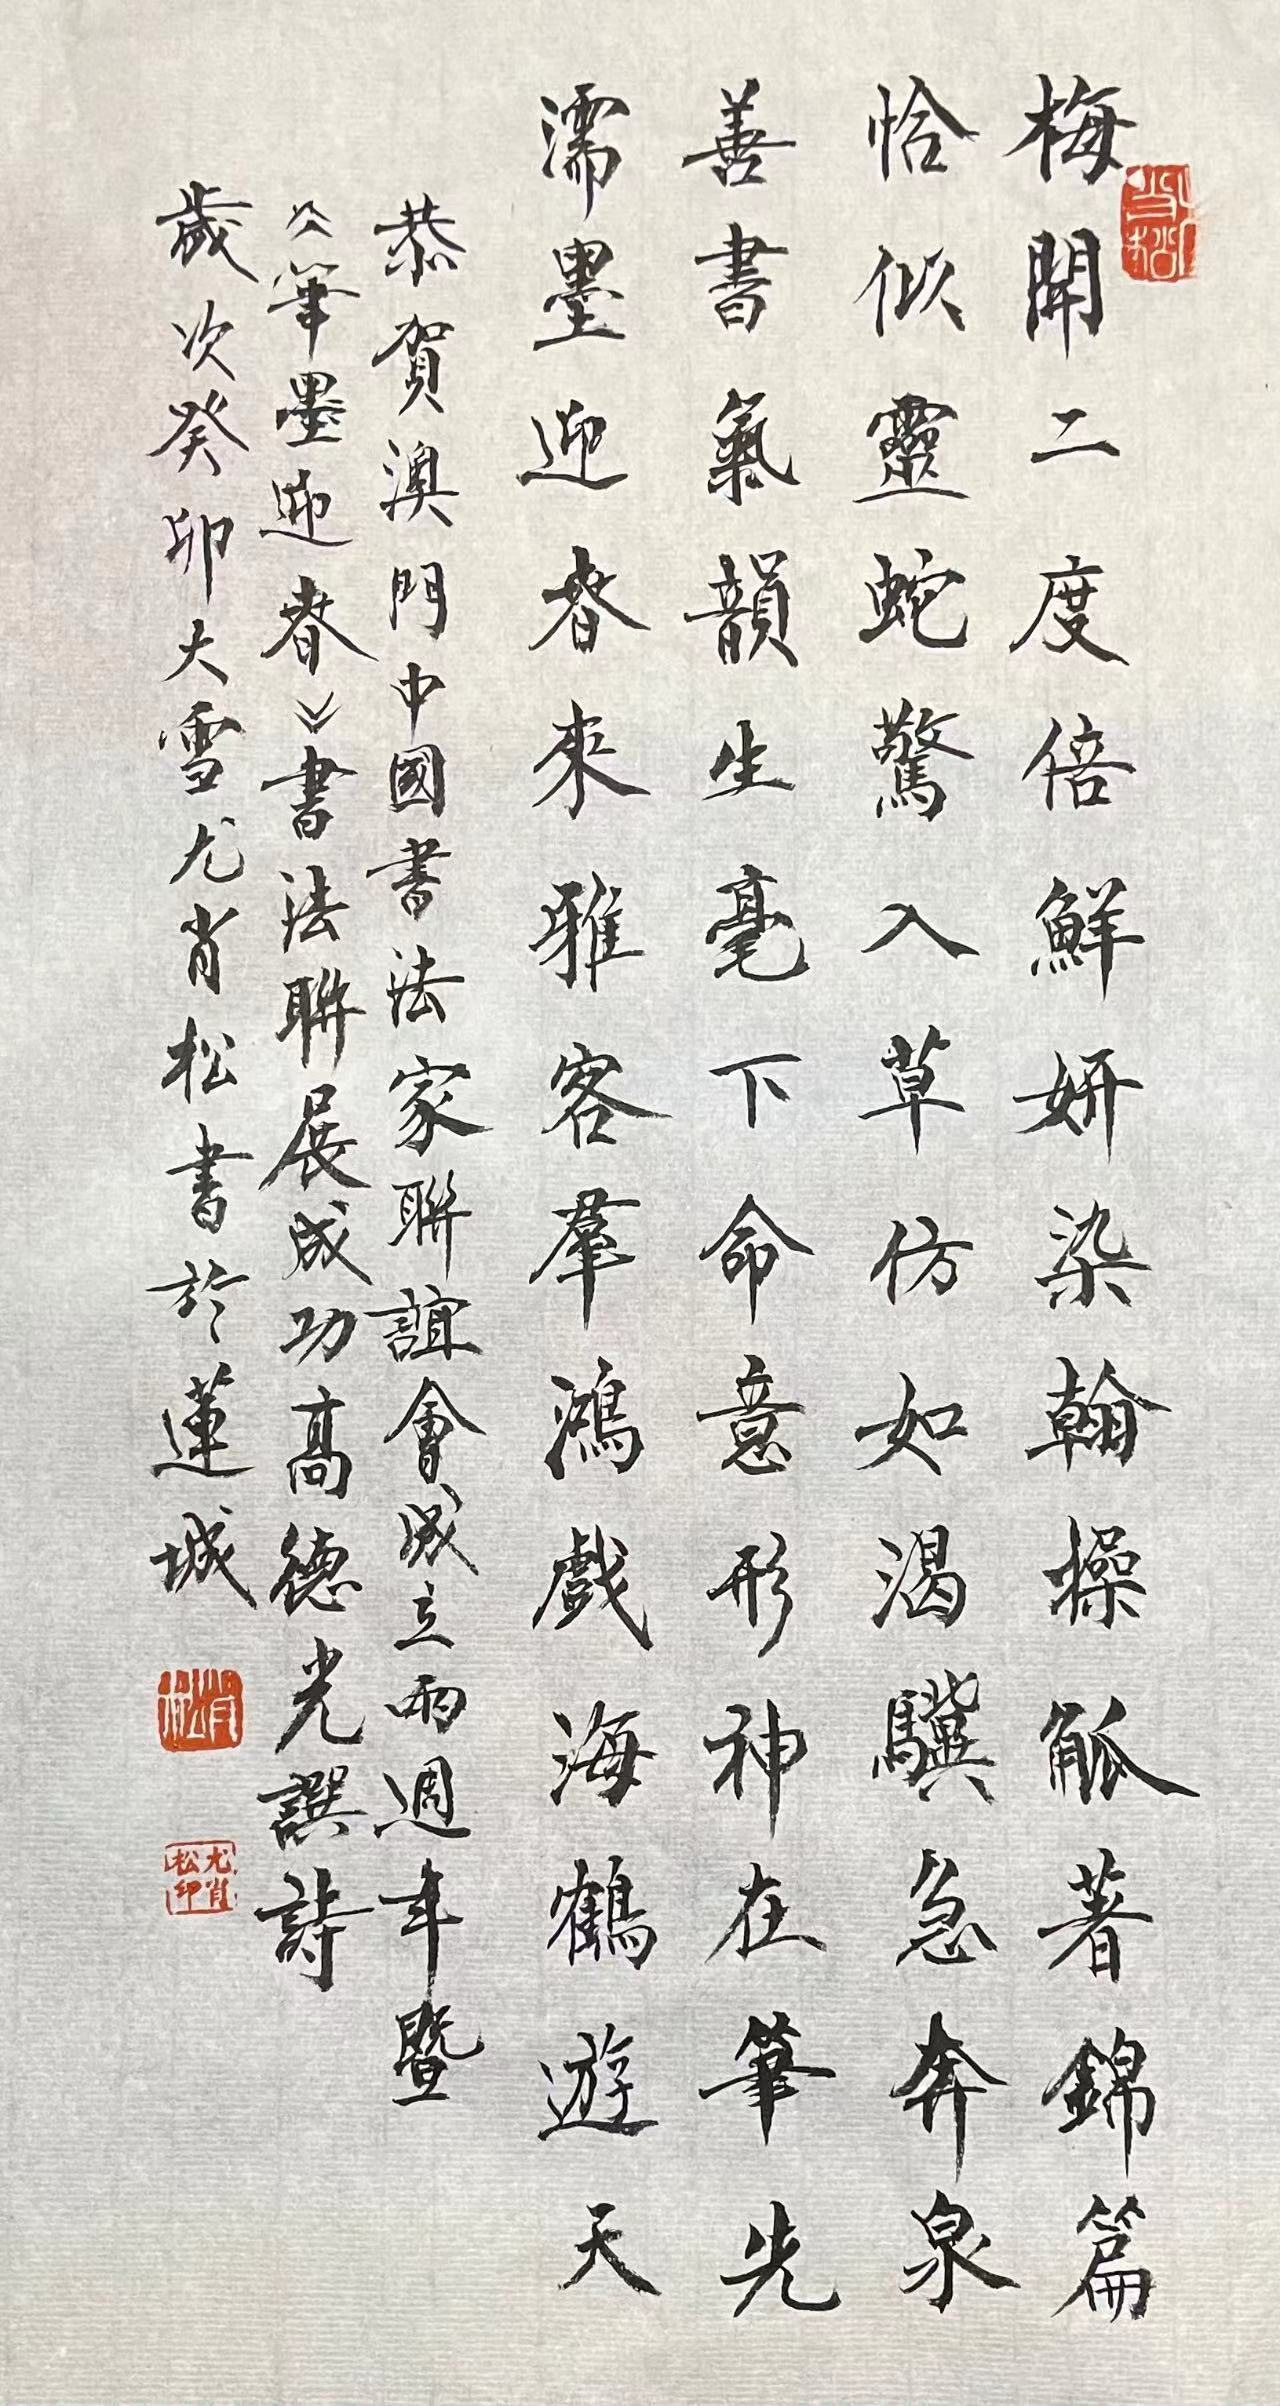 梅開二度倍鮮妍染翰操觚著錦篇
恰似靈蛇驚入草仿如渴驥急奔泉
善書氣韻生毫下命意形神在筆先
濡墨迎春來雅客羣鴻戲海鶴遊天
恭賀澳門中國書法家聯誼會成立兩週年暨
《筆墨迎春》書法聯展成功高德光譔詩
歲次癸卯大雪尤肖松書於蓮城
尤肖松印